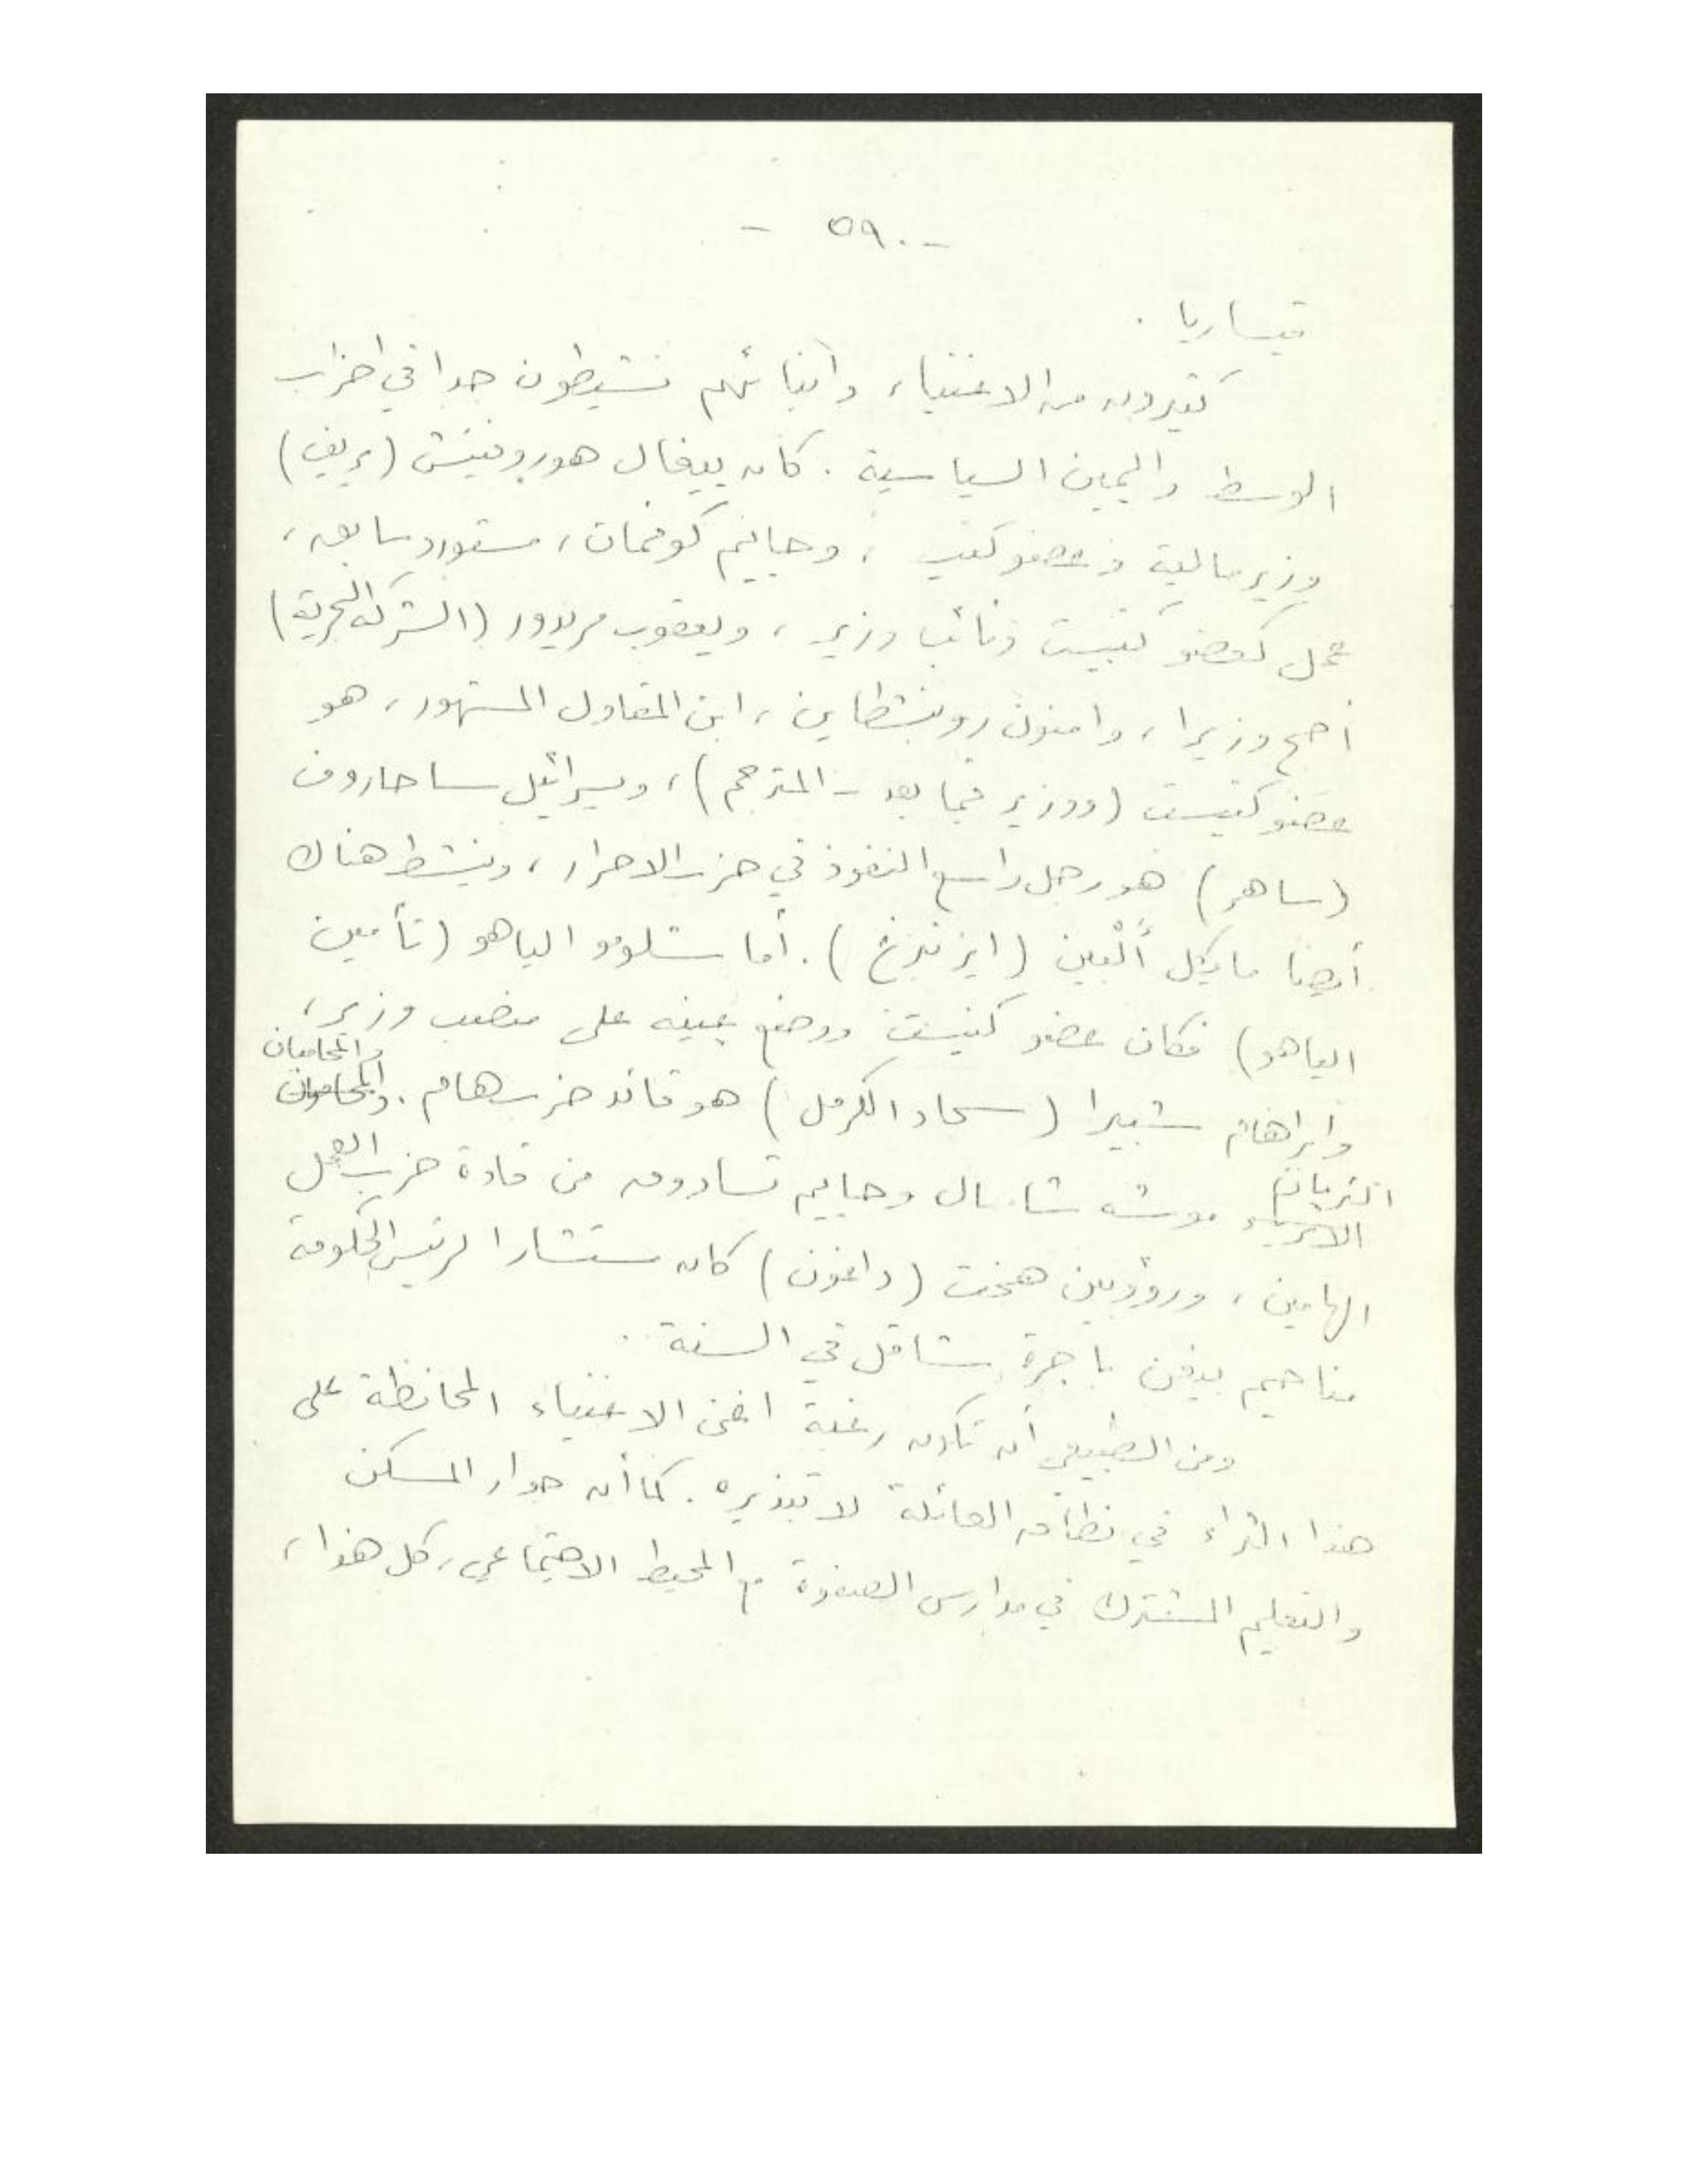 - ٥٩٠ -
قيساريا .
كثيرون من الاغنياء وابنائهم نشيطون جدا في احزاب
الوسط واليمين السياسية . كان ييغال هوروفيتش (يريف)
وزير مالية وعضو كنيست ، وحاييم كوفمان ، مستورد سابق ،
عمل كعضو كنيست ونائب وزير ، ويعقوب مريدور (الشركة البحرية)
أصبح وزيرا ، وامنون روبنشطاين ، ابن المقاول المشهور ، هو
عضو كنيست (ووزير فيما بعد - المترجم) ، ويسرائيل ساحاروف
(ساهر) هو رجل واسع النفوذ في حزب الاحرار ، وينشط هناك
أيضا مايكل ألبين (ايزنبرغ) . أما شلومو الياهو (تأمين
الياهو) فكان عضو كنيست ووضع عينه على منصب وزير ،
وابراهام شبيرا (سجاد الكرمل) هو قائد حزب هام . والمحاميان
الثريان موشه شاحال وحاييم تسادوق من قادة حزب العمل
الهامين ، ورؤوبين هخت (داغون) كان مستشارا لرئيس الحكومة
مناحيم بيغن باجرة شاقل في السنة .
ومن الطبيعي أن تكون رغبة اغنى الاغنياء المحافظة على
هذا الثراء في نطاق العائلة لا تبذيره . كما أن جوار المسكن
والتعليم المشترك في مدارس الصفوة مع المحيط الاجتماعي ، كل هذا ،